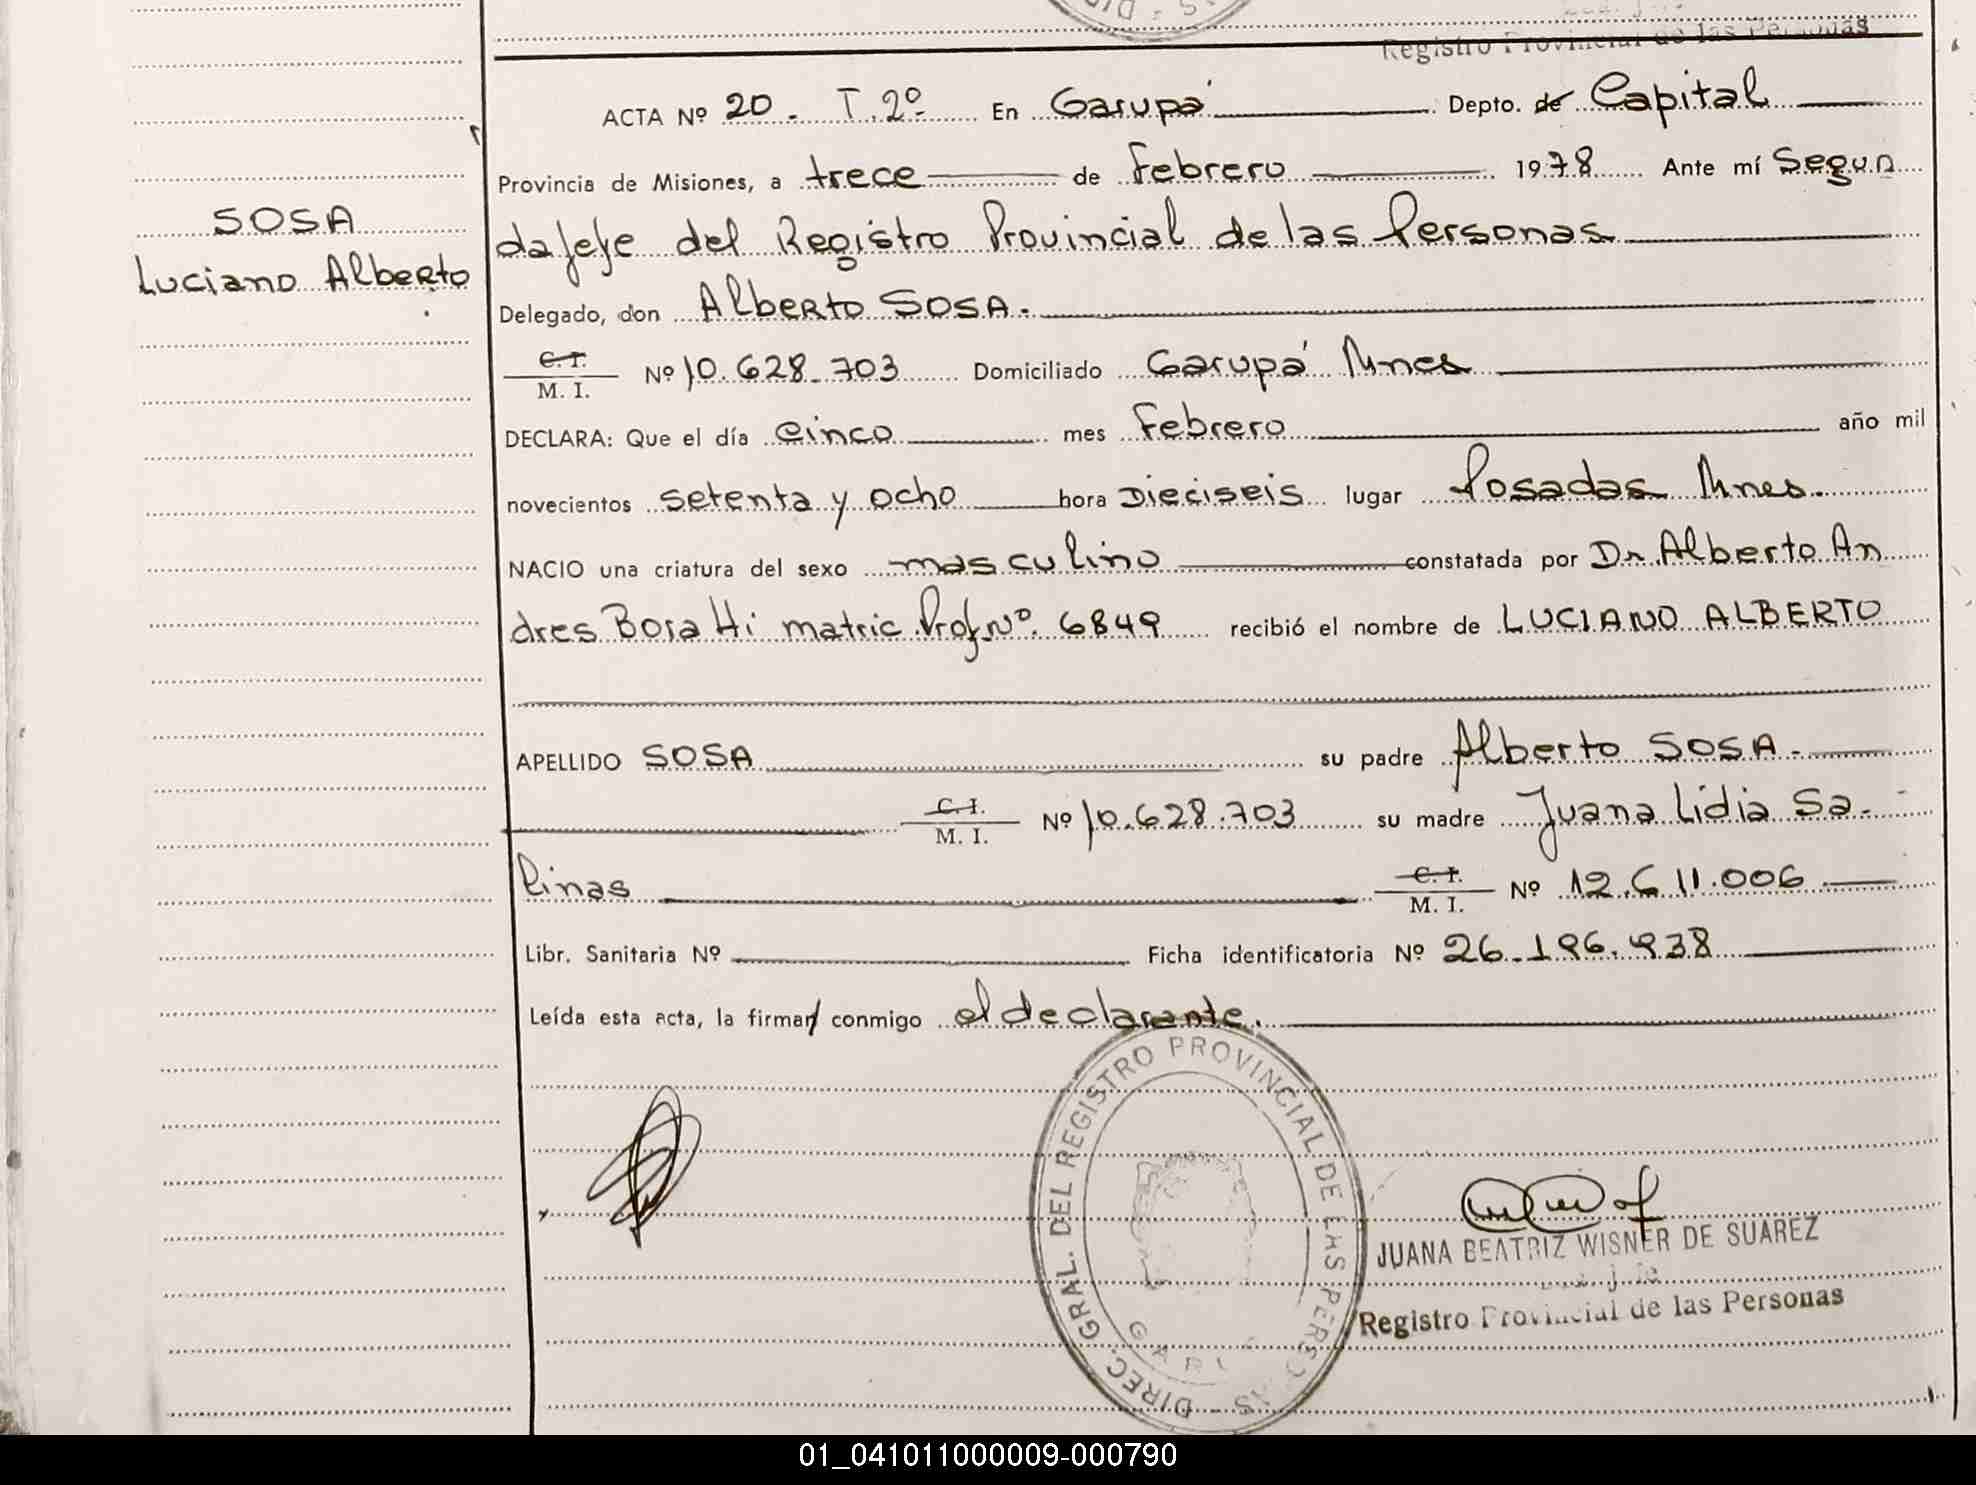 Registro Provincial de las Personas
ACTA Nº 20. T. 2º En Garupá Depto. de Capital
Provincia de Misiones, a trece de Febrero 1978 Ante mí Segun
da Jefe del Registro Provincial de las Personas
SOSA
Luciano Alberto
Delegado, don Alberto SOSA.
C. I.
M. I.
Nº 10.628.703 Domiciliado Garupá Mnes
DECLARA: Que el día cinco mes Febrero año mil
novecientos setenta y ocho hora Dieciseis lugar Posadas Mnes.
NACIO una criatura del sexo masculino constatada por Dr. Alberto An
dres Boratti matric. Prof. Nº. 6849 recibió el nombre de LUCIANO ALBERTO
APELLIDO SOSA su padre Alberto SOSA.
C. I.
M. I.
Nº 10.628.703 su madre Juana Lidia Sa-
linas
C. I.
M. I.
Nº 12.611.006
Libr. Sanitaria Nº Ficha identificatoria Nº 26.196.938
Leída esta acta, la firman conmigo el declarante.
DIREC. GRAL. DEL REGISTRO PROVINCIAL DE LAS PERSONAS
JUANA BEATRIZ WISNER DE SUAREZ
Registro Provincial de las Personas
01_041011000009-000790